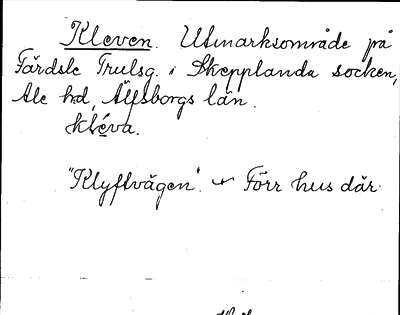 Kleven. Utmarksområde på
Färdsle Trulsg. i Skepplanda socken,
Ale hd, Älfsborgs län.
kléva.
"Klyftvägen". Förr hus där.